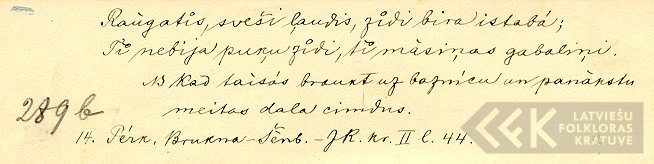 Raũgatīs, sveši ļaudis, zīdi bira istabā;
Tī nebija puķu zīdi, tī māsiņas gabaliņi.
NB Kad taisās braukt uz baznīcu un panākstu
meitas dala cimdus.
289 b
14. Pērk, Brukna-Šēnb. - JR. kr. II l. 44.
LATVIEŠU
FOLKLORAS
KRĀTUVE